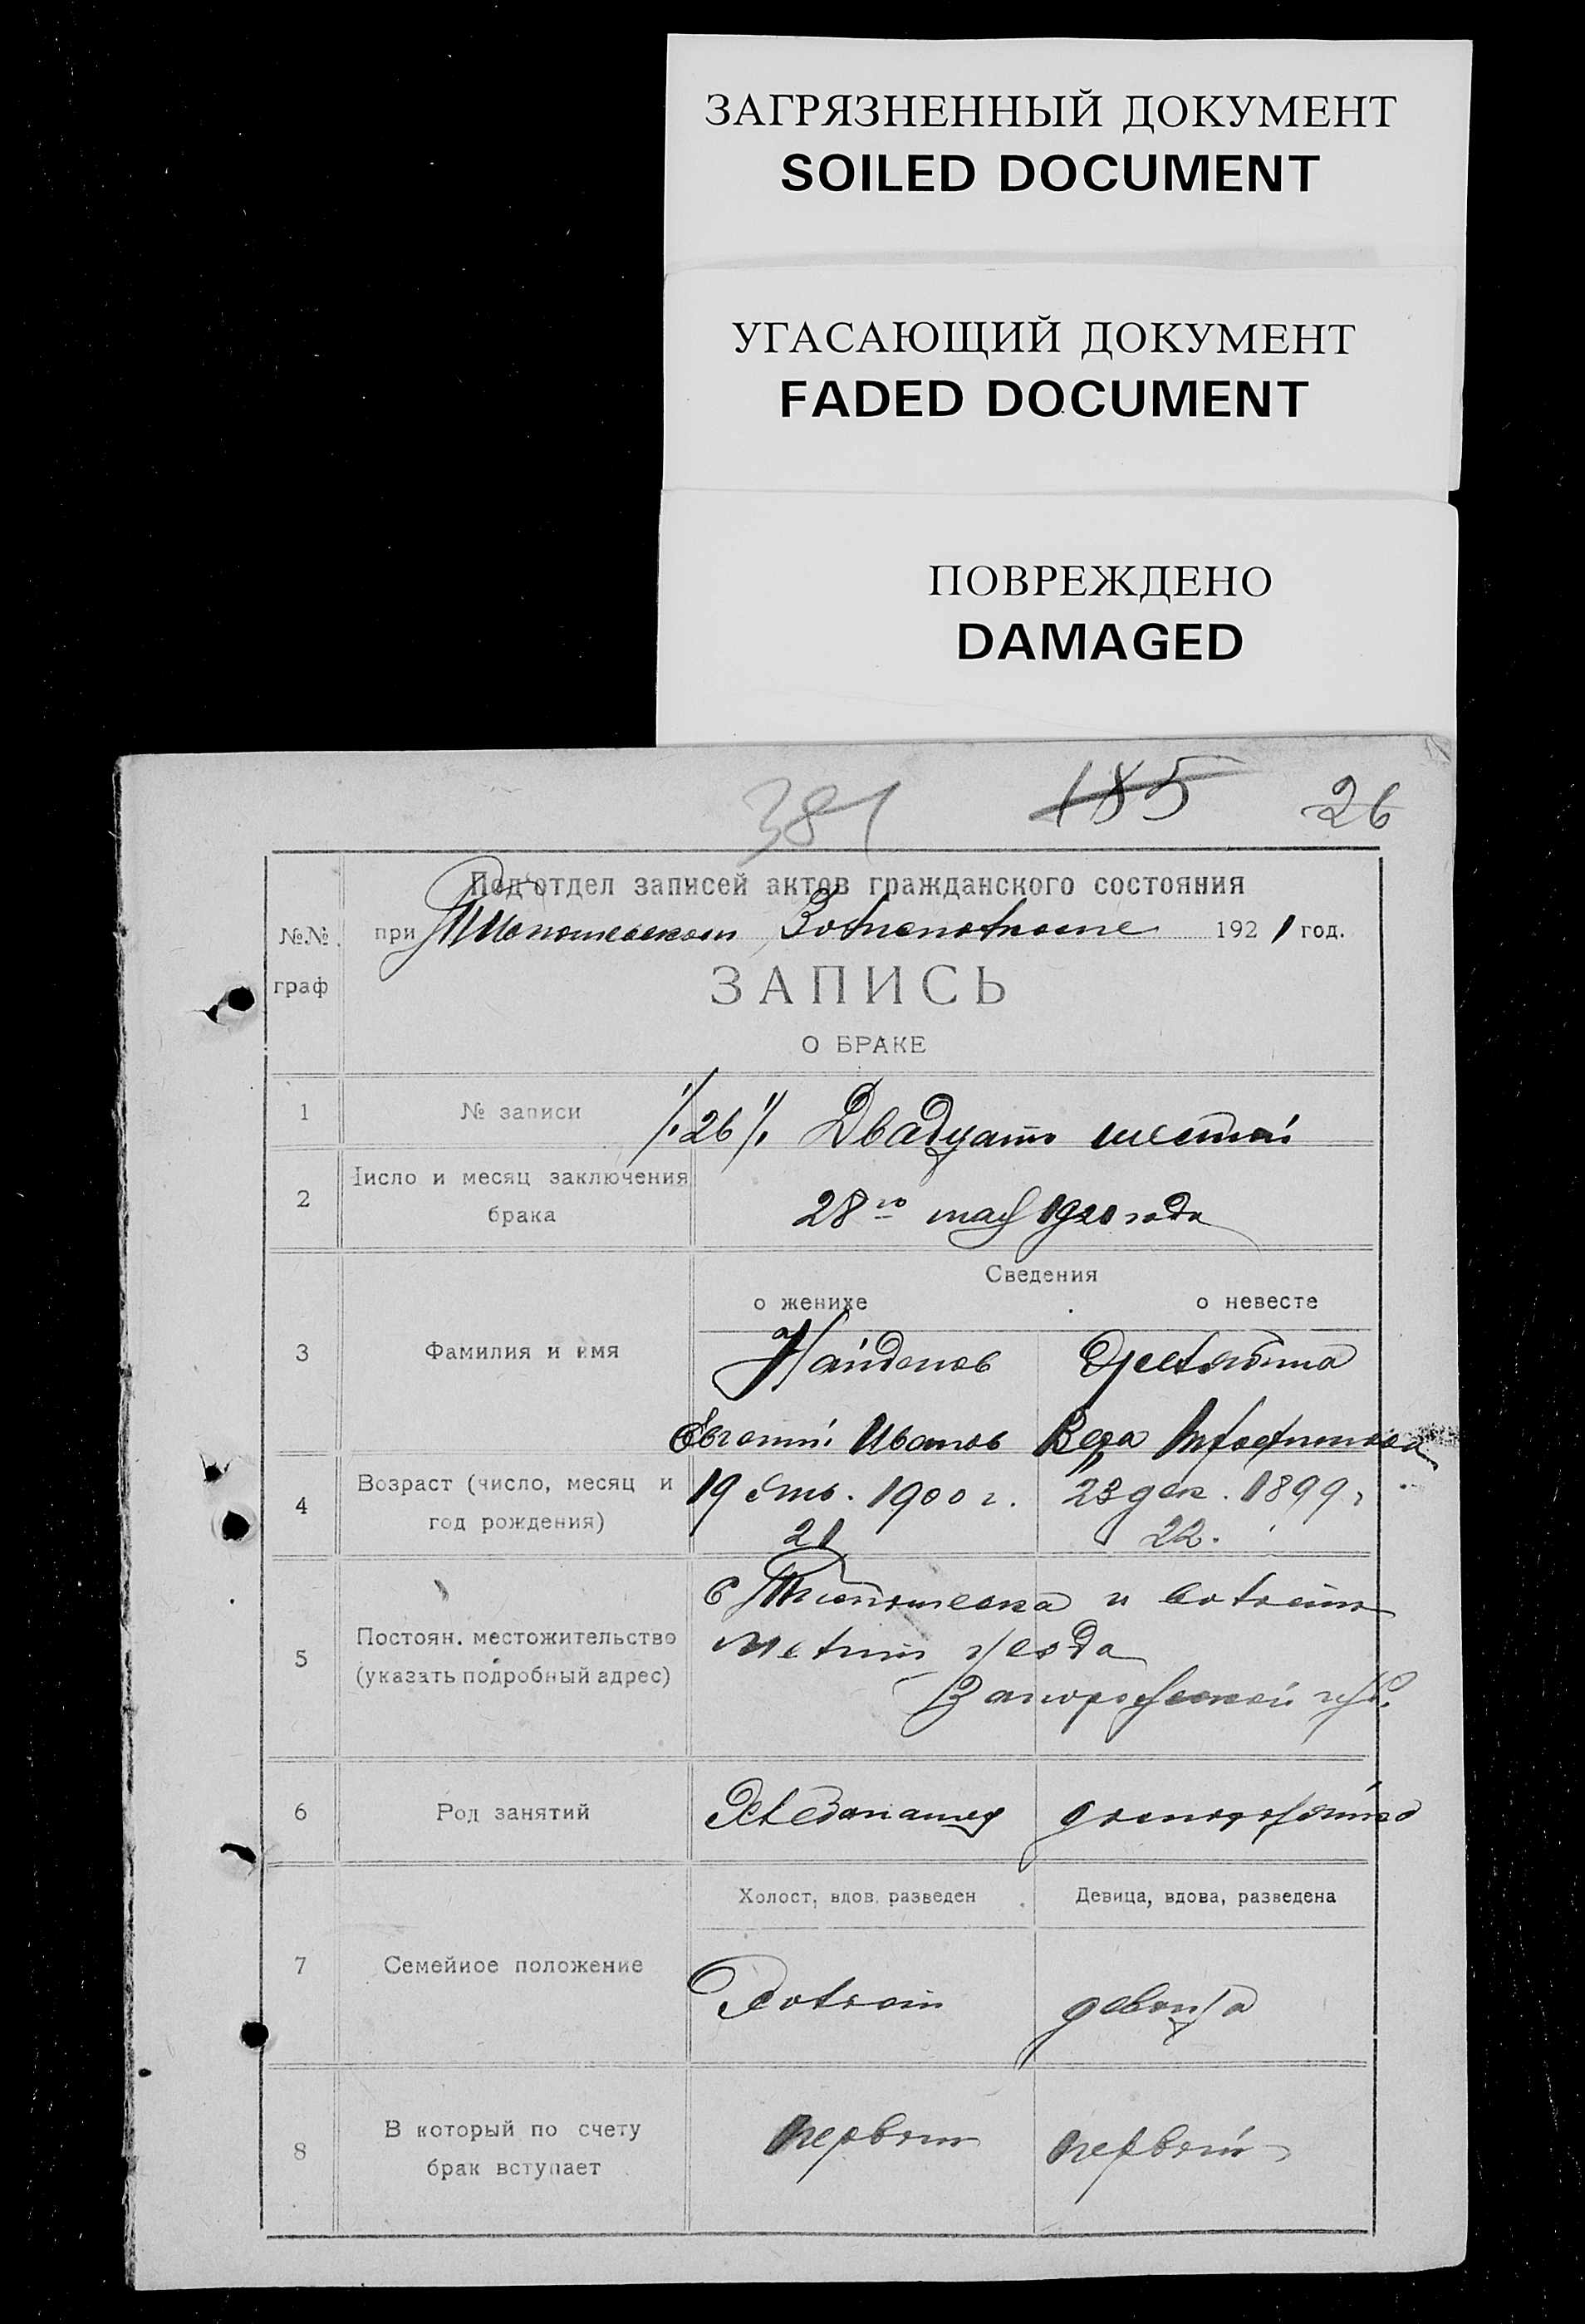 ЗАГРЯЗНЕННЫЙ ДОКУМЕНТ
SOILED DOCUMENT
УГАСАЮЩИЙ ДОКУМЕНТ
FADED DOCUMENT
ПОВРЕЖДЕНО
DAMAGED
381 185 26
Под'отдел записей актов гражданского состояния
№№ граф
при Волисполкоме 1921 год.
ЗАПИСЬ
О БРАКЕ
1 № записи /.26/. Двадцать шестой
2 Число и месяц заключения брака 28го мая 1921 года
Сведения
о женихе о невесте
3 Фамилия и имя
Найденов
Евгений Иванов Вера
4 Возраст (число, месяц и год рождения)
19 Янв. 1900 г. 23 дек. 1899 г
21 22.
5 Постоян. местожительство (указать подробный адрес)
с Тимошевка и волости
Мелит уезда
Запорожской губ.
6 Род занятий Хлебопашец домохозяйка
Холост, вдов. разведен Девица, вдова, разведена
7 Семейное положение Холост девица
8 В который по счету брак вступает первый первый